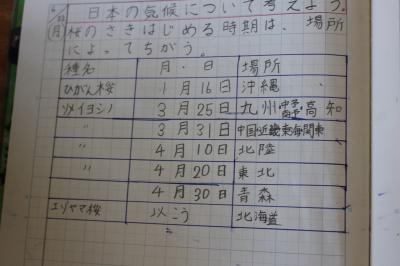 6/22 日本の気候について考えよう。
(月) 桜のさきはじめる時期は、場所
によってちがう。
種名 月・日 場所
ひがん桜 1月16日 沖縄
ソメイヨシノ 3月25日 九州 高知
〃 3月31日 中国近畿東海関東
〃 4月10日 北陸
〃 4月20日 東北
4月30日 青森
エゾヤマ桜 以こう 北海道